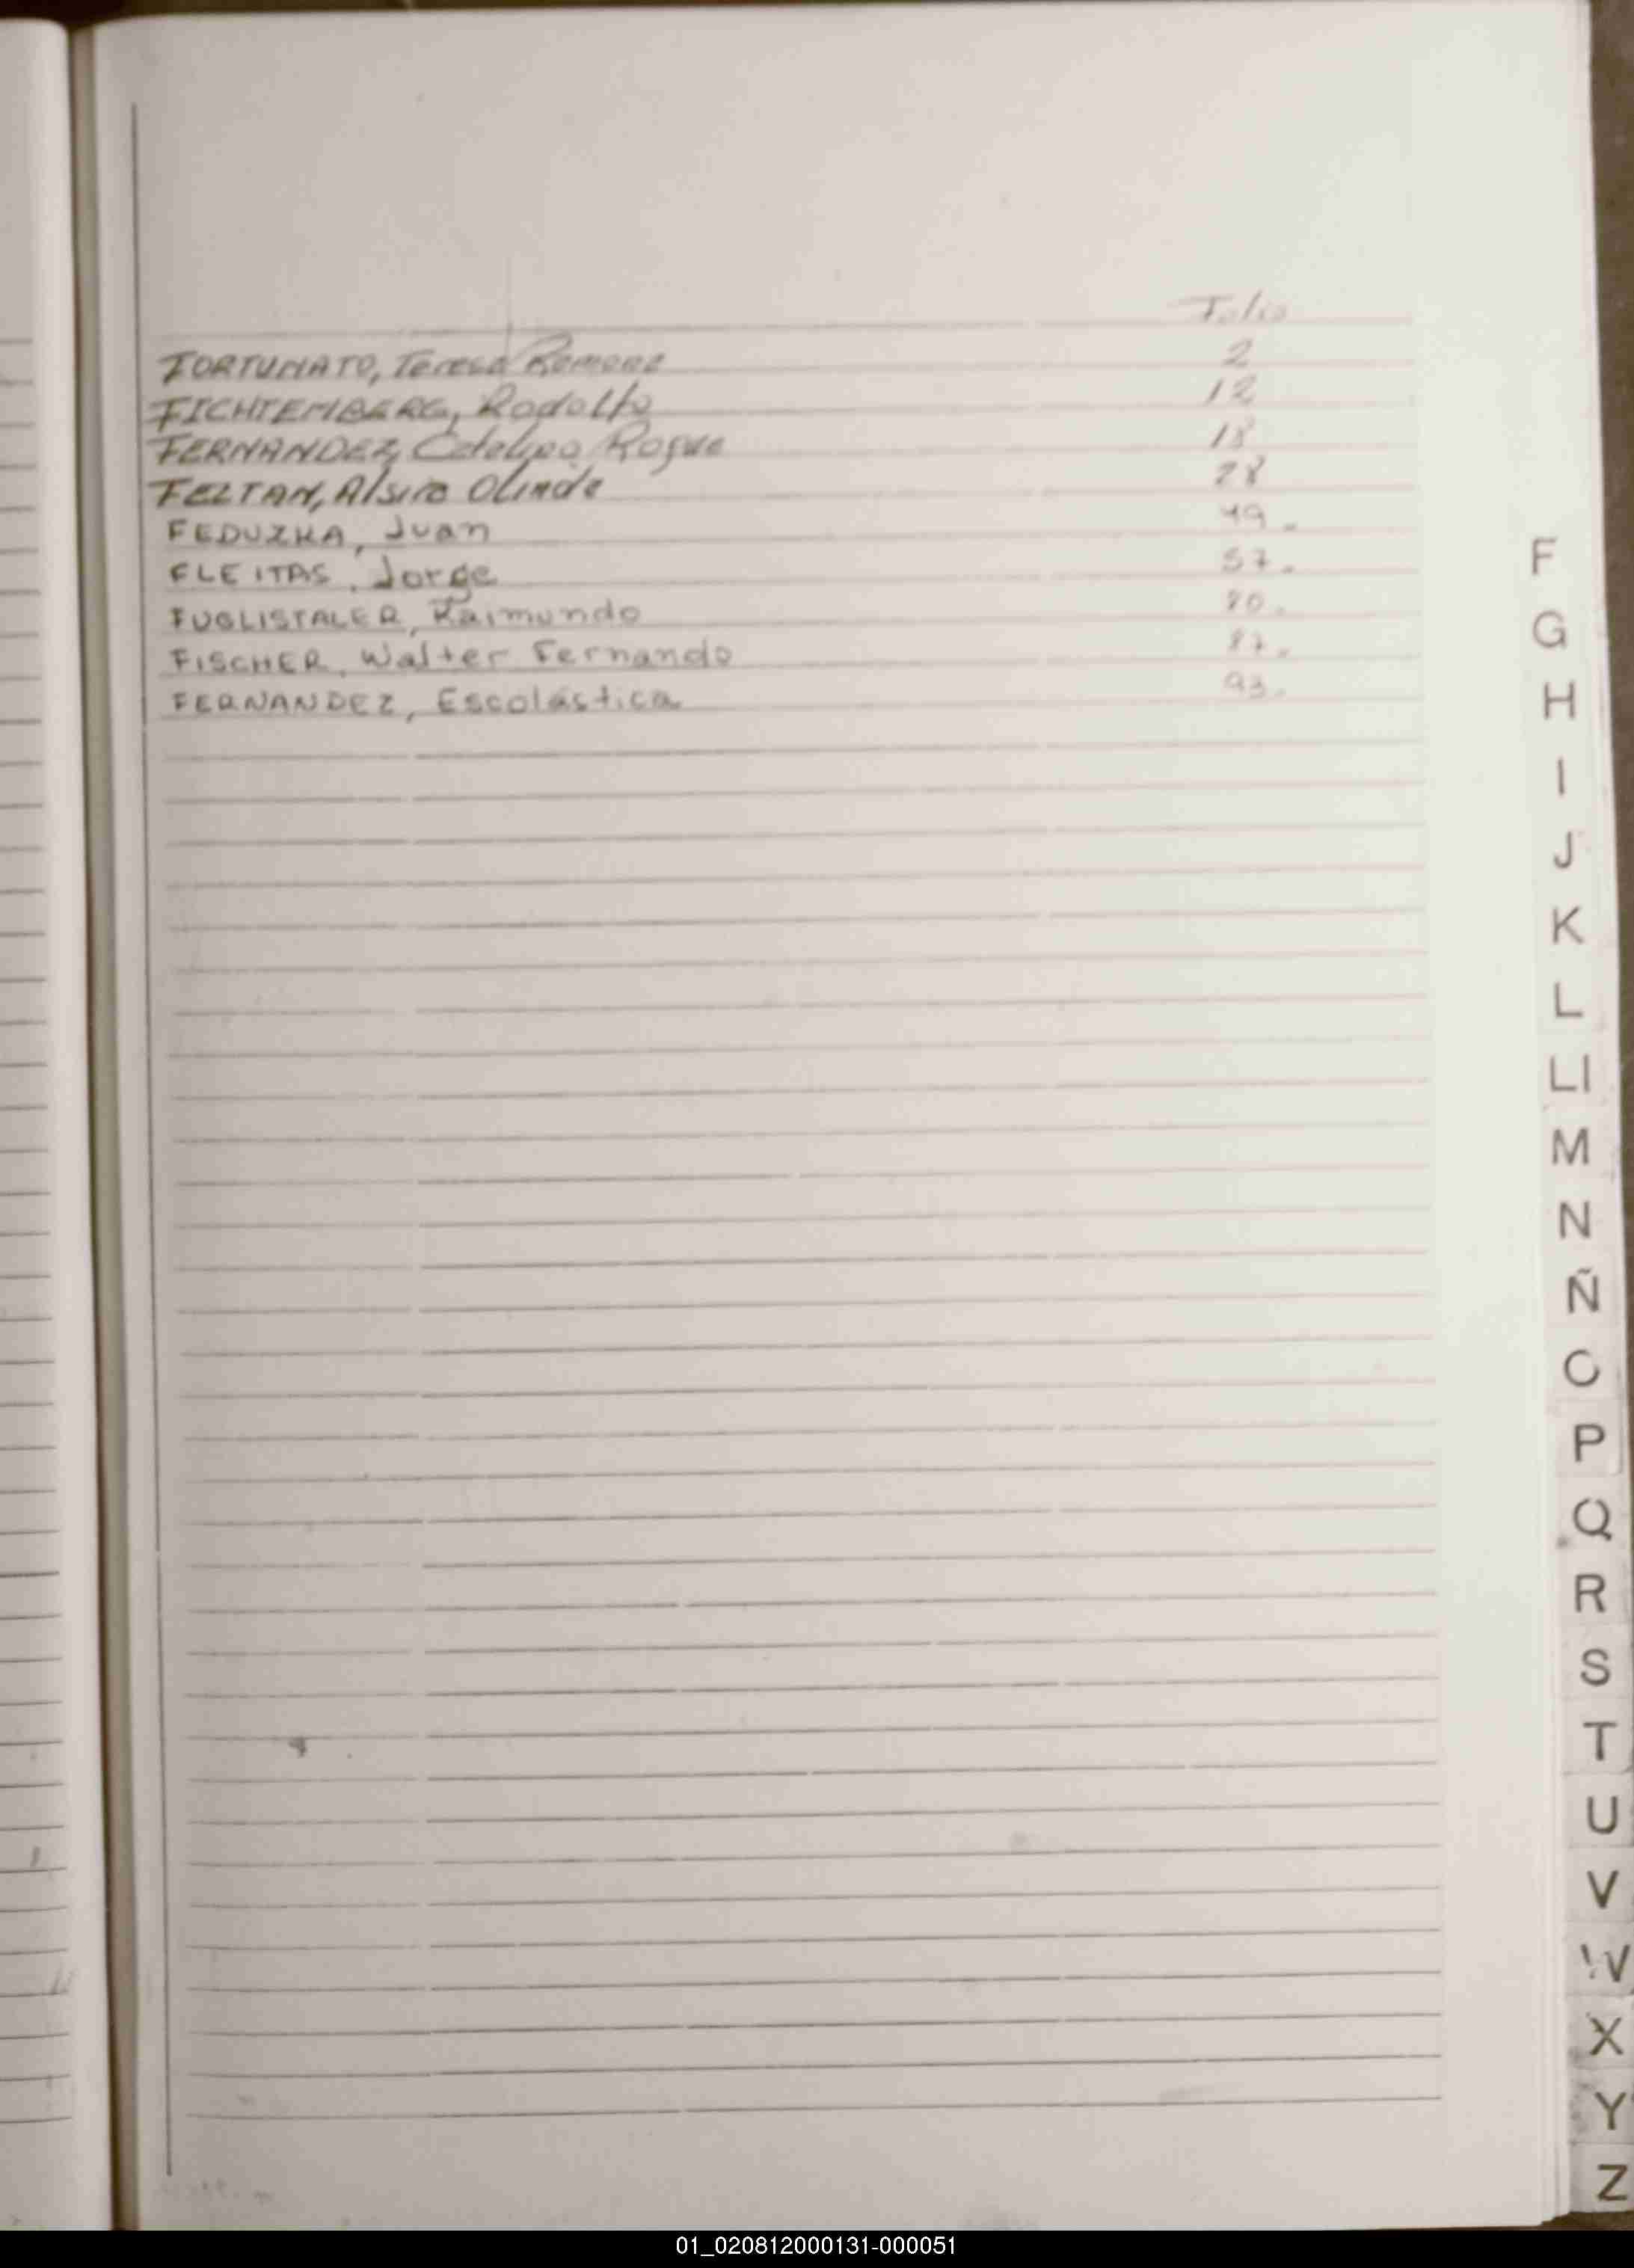 Folio
FORTUNATO, Teresa Ramona 2
FICHTEMBERG, Rodolfo 12
FERNANDEZ, Catalino Roque 18
FELTAN, Alsira Olinda 28
FEDUZKA, Juan 49.
FLEITAS, Jorge 57.
FUGLISTALER, Raimundo 80.
FISCHER, Walter Fernando 87.
FERNANDEZ, Escolástica 93.
F
G
H
I
J
K
L
Ll
M
N
Ñ
O
P
Q
R
S
T
U
V
W
X
Y
Z
01_020812000131-000051